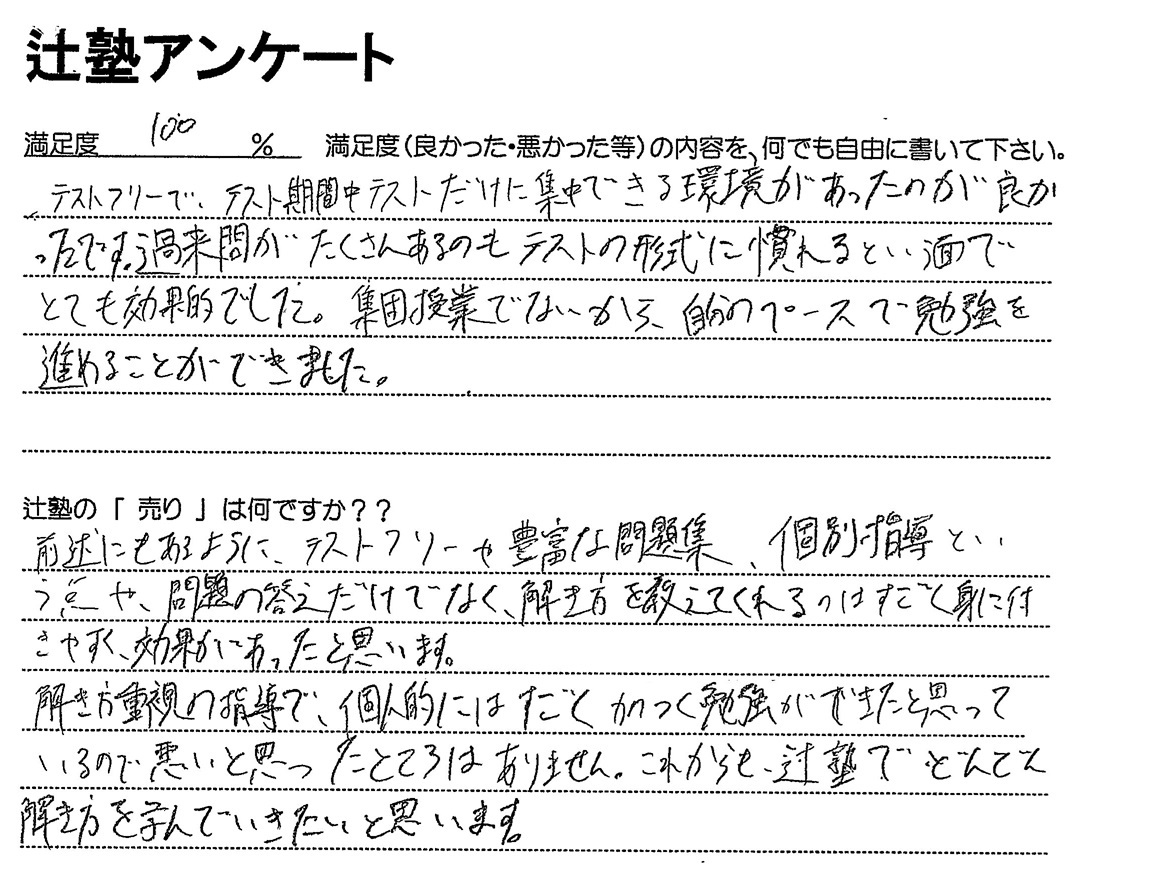 辻塾アンケート
満足度 100 % 満足度(良かった・悪かった等)の内容を、何でも自由に書いて下さい。
テストフリーで、テスト期間中テストだけに集中できる環境があったのが良か
ったです。過来問がたくさんあるのもテストの形式に慣れるという面で
とても効果的でした。集団授業でないから、自分のペースで勉強を
進めることができました。
辻塾の「 売り 」は何ですか??
前述にもあるように、テストフリーや豊富な問題集、個別指導とい
う点や、問題の答えだけでなく、解き方を教えてくれるのはすごく身に付
きやすく、効果があったと思います。
解き方重視の指導で、個人的にはすごく力つく勉強ができたと思って
いるので悪いと思ったところはありません。これからも、辻塾でどんどん
解き方を学んでいきたいと思います。